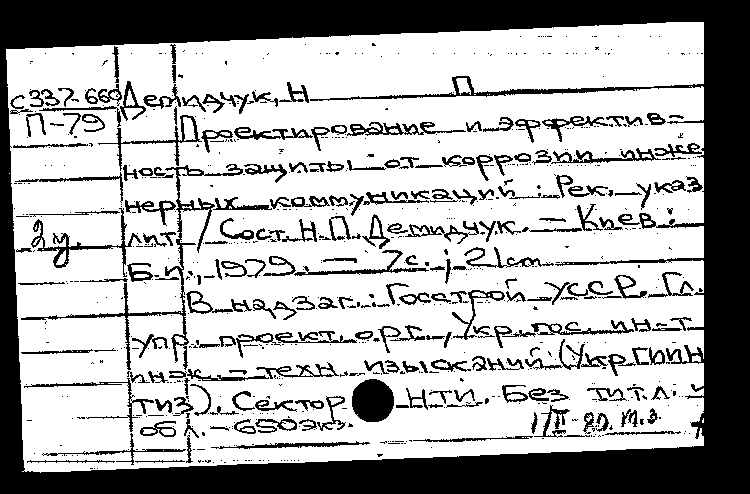 с337-660 Демидчук, Н П
П-79 Проектирование и эффектив-
ность защиты от коррозии инже
нерных коммуникаций: Рек. указ
2 у. лит. / Сост. Н.П. Демидчук. — Киев:
Б.и., 1979. — 7с.; 21 cm
В надзаг.: Госстрой УССР. Гл.
упр. проект. орг., Укр. гос. ин-т
инж.-техн. изысканий (УкрГИИН
ТИЗ). Сектор НТИ. Без тит.л. и
обл. - 650 экз. 1/II-80. т.з.